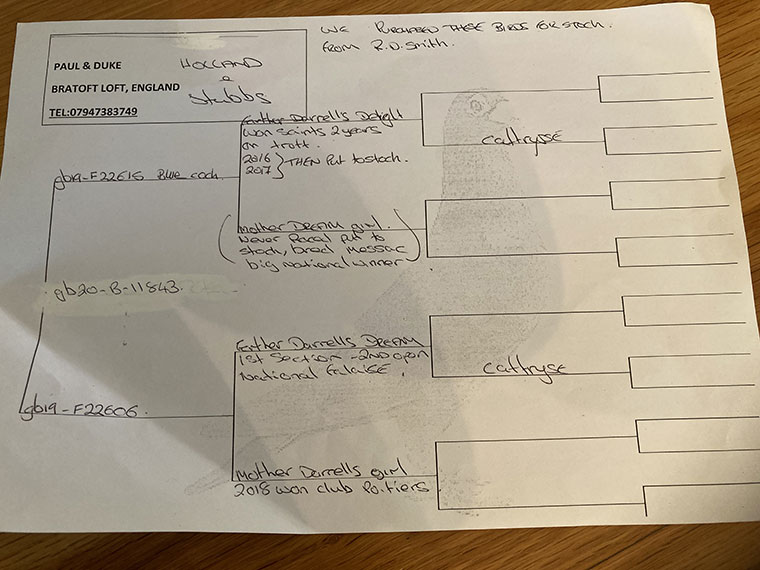 WE PURCHASED THESE BIRDS FOR STOCK.
FROM R.D.Smith.
PAUL & DUKE
BRATOFT LOFT, ENGLAND
TEL:07947383749
HOLLAND
&
Stubbs
Farther Darrells Delight
won Saints 2 years
on trott.
2016
2017
THEN Put to stock.
cattrysse
gb19-F22615 Blue cock.
Mother DREAM girl.
Never Raced Put to
stock, bred Messac
big National winner
gb20-B-11843.
Farther Darrells DREAM
1st Section - 2ND open
National Falaise.
cattryse
gb19-F22606.
Mother Darrells girl
2018 won club Poitiers